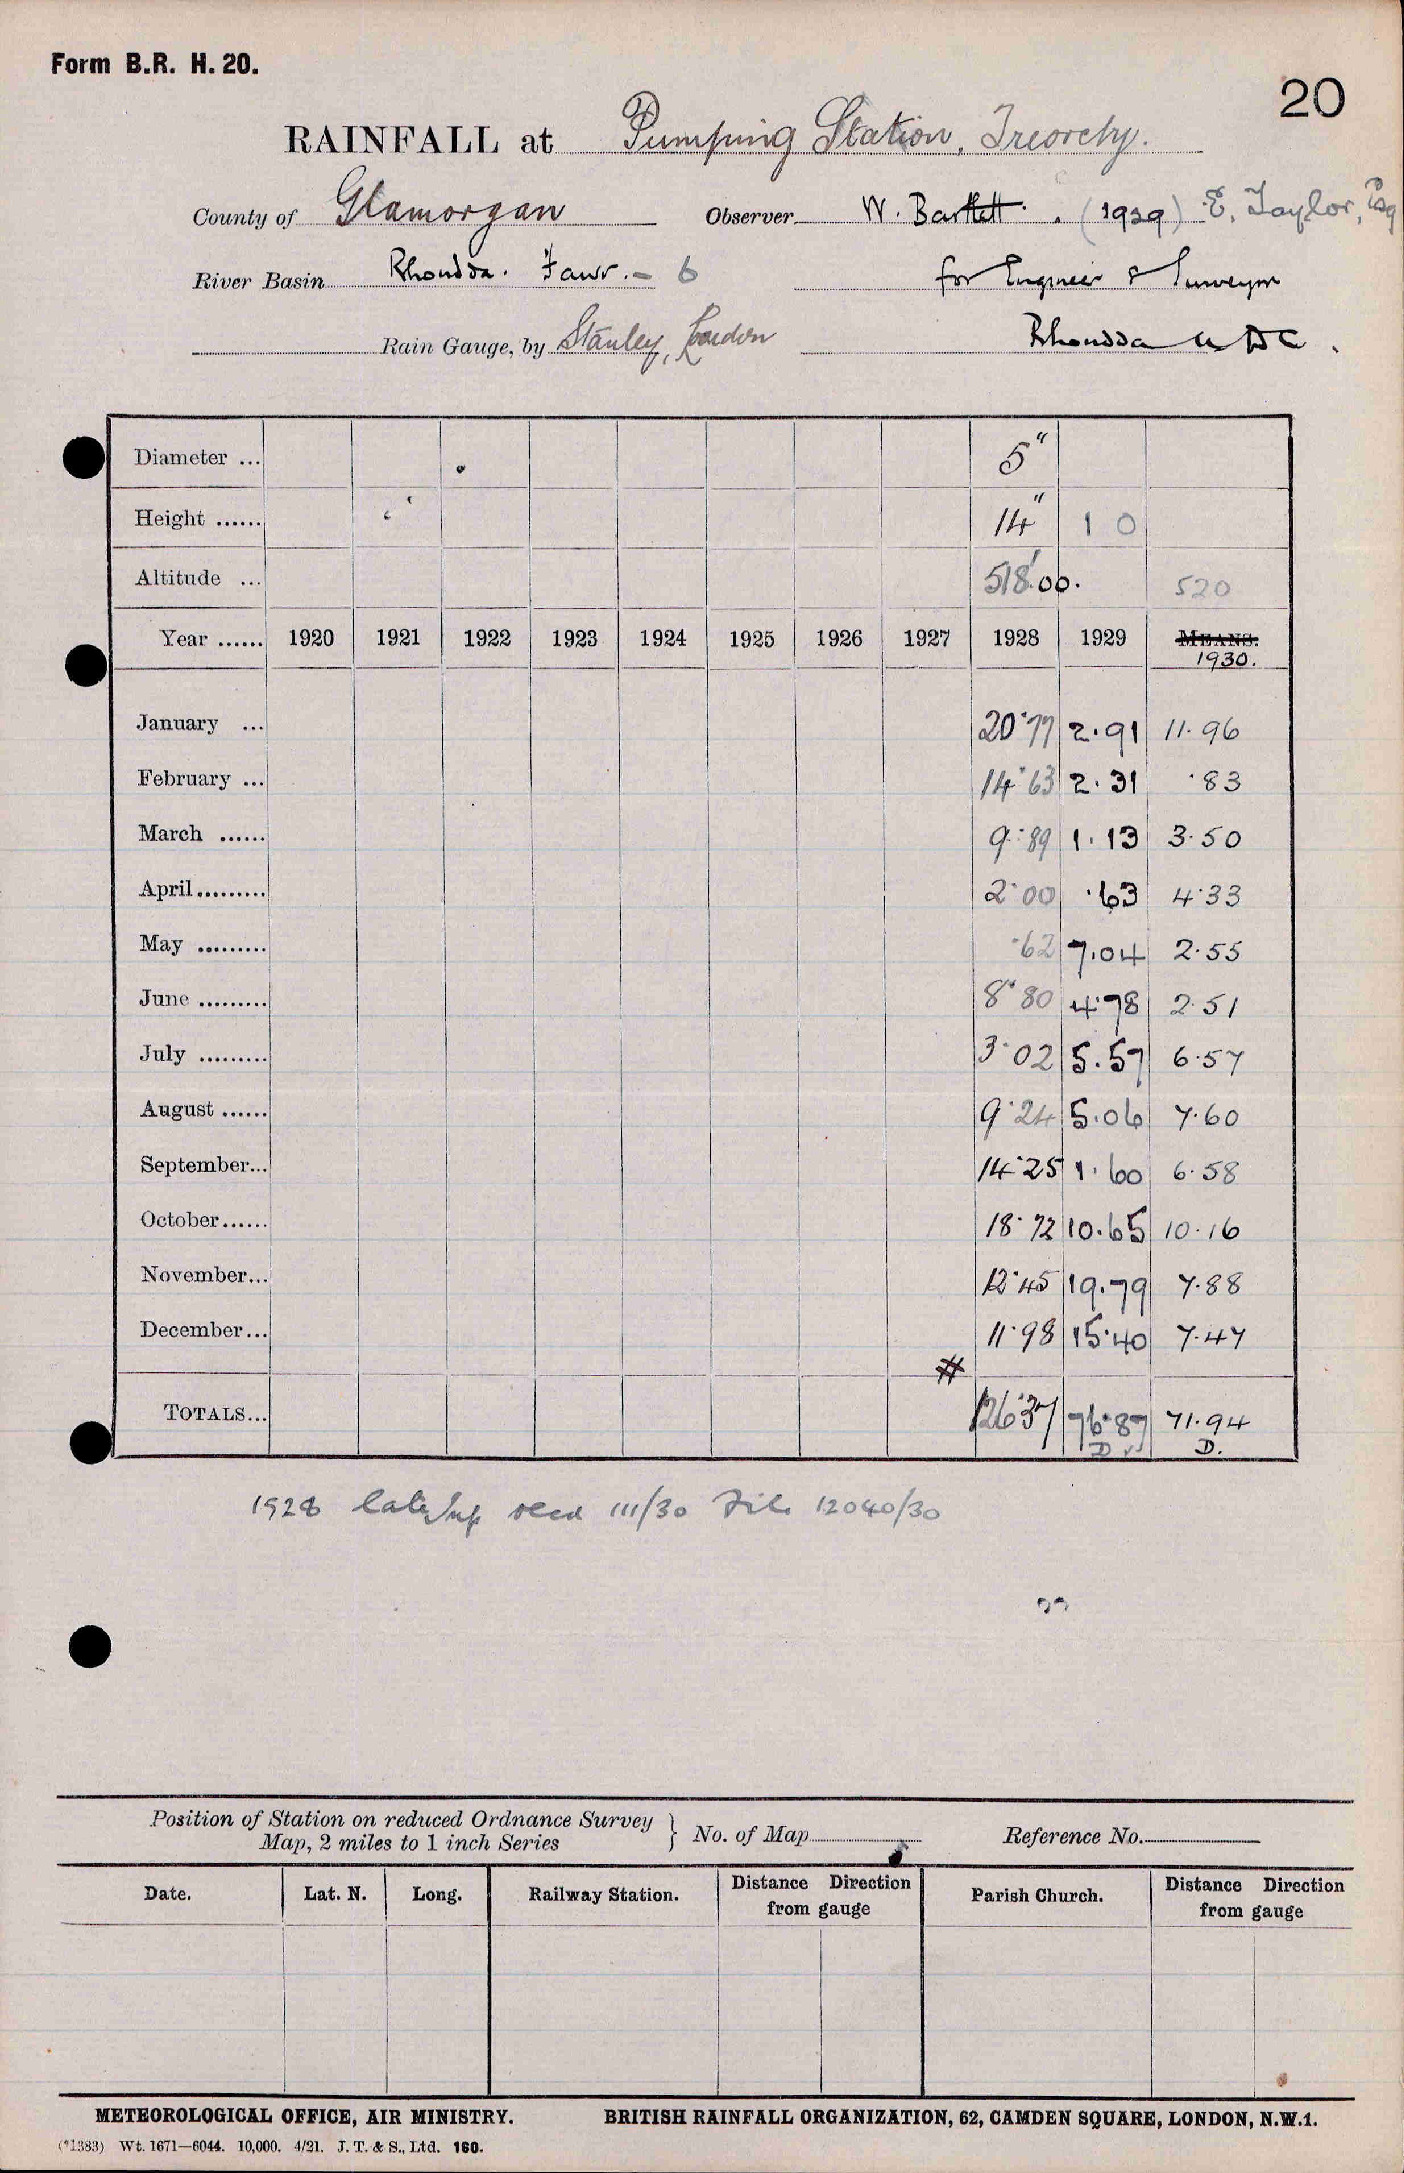 Form B.R. H. 20.
20
RAINFALL at Pumping Station, Treorchy.
County of Glamorgan Observer W. Bartlett. (1929) E. Taylor, Esq
River Basin Rhondda. Fawr. - 6 for Engineer & Surveyor
Rain Gauge, by Stanley, London Rhondda U D C.
Diameter ... 5"
Height ...... 14" 1 0
Altitude ... 518'.00. 520
Year ...... 1920 1921 1922 1923 1924 1925 1926 1927 1928 1929 MEANS.
1930.
January ... 20.77 2.91 11.96
February ... 14.63 2.31 .83
March ...... 9.89 1.13 3.50
April ......... 2.00 .63 4.33
May ......... .62 7.04 2.55
June ......... 8.80 4.78 2.51
July ......... 3.02 5.57 6.57
August ...... 9.24 5.06 7.60
September... 14.25 1.60 6.58
October...... 18.72 10.65 10.16
November... 12.45 19.79 7.88
December... 11.98 15.40 7.47
#
TOTALS... 126.37 76.87 71.94
D D.
1928 recd 111/30 File 12040/30
Position of Station on reduced Ordnance Survey
Map, 2 miles to 1 inch Series } No. of Map Reference No.
Date. Lat. N. Long. Railway Station. Distance Direction from gauge Parish Church. Distance Direction from gauge
METEOROLOGICAL OFFICE, AIR MINISTRY. BRITISH RAINFALL ORGANIZATION, 62, CAMDEN SQUARE, LONDON, N.W.1.
(*1383) Wt. 1671—6044. 10,000. 4/21. J. T. & S., Ltd. 160.